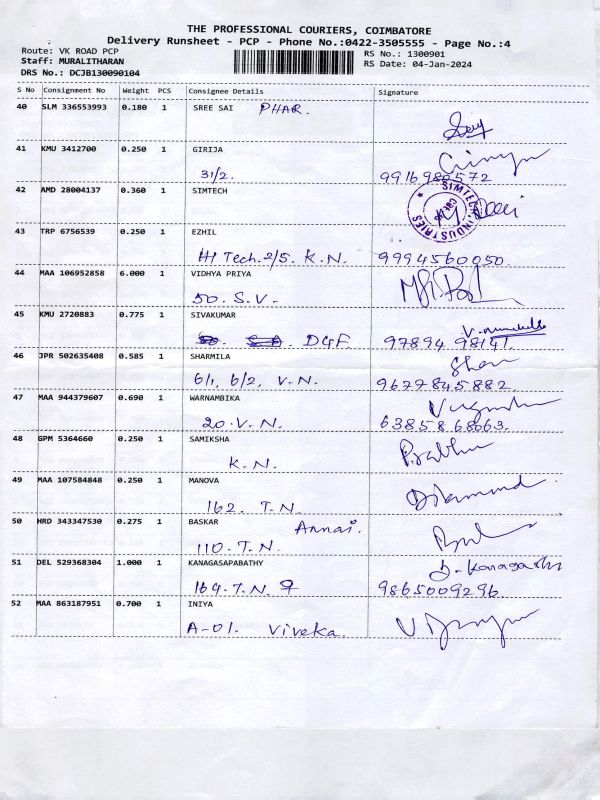 THE PROFESSIONAL COURIERS, COIMBATORE
Delivery Runsheet - PCP - Phone No.:0422-3505555 - Page No.:4
Route: VK ROAD PCP RS No.: 1300901
Staff: MURALITHARAN RS Date: 04-Jan-2024
DRS No.: DCJB130090104
S No Consignment No Weight PCS Consignee Details Signature
40 SLM 336553993 0.180 1 SREE SAI PHAR.
41 KMU 3412700 0.250 1 GIRIJA
31/2. 9916980572
42 AMD 28004137 0.360 1 SIMTECH
SIMTECH INDUSTRIES CBE
43 TRP 6756539 0.250 1 EZHIL
HI Tech. 2/5. K.N. 9994560050.
44 MAA 106952858 6.000 1 VIDHYA PRIYA
50. S.V.
45 KMU 2720883 0.775 1 SIVAKUMAR
DGF 97894 98141.
46 JPR 502635408 0.585 1 SHARMILA
6/1, 6/2, V.N. 9677845882
47 MAA 944379607 0.690 1 WARNAMBIKA
20.V.N. 6385868063.
48 GPM 5364660 0.250 1 SAMIKSHA
K.N. Prabhu
49 MAA 107584848 0.250 1 MANOVA
162. T.N.
50 HRD 343347530 0.275 1 BASKAR Annai.
110. T.N.
51 DEL 529368304 1.000 1 KANAGASAPABATHY
164. T.N. 9865009296.
52 MAA 863187951 0.700 1 INIYA
A-01. Viveka.